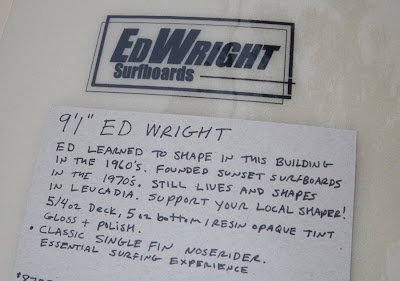 ED WRIGHT
Surfboards
9'1" ED WRIGHT
ED LEARNED TO SHAPE IN THIS BUILDING
IN THE 1960'S. FOUNDED SUNSET SURFBOARDS
IN THE 1970'S. STILL LIVES AND SHAPES
IN LEUCADIA. SUPPORT YOUR LOCAL SHAPER!
5/4oz DECK, 5 oz bottom/RESIN OPAQUE TINT
GLOSS + POLISH.
• CLASSIC SINGLE FIN NOSERIDER.
ESSENTIAL SURFING EXPERIENCE